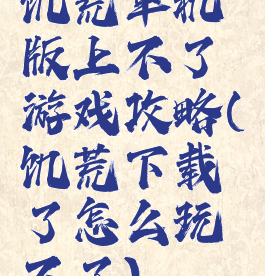 饥荒单机
版上不了
游戏攻略(
饥荒下载
了怎么玩
不了)